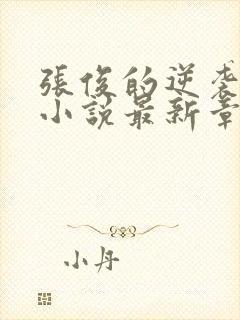 張俊的逆袭
小説最新章
小丹